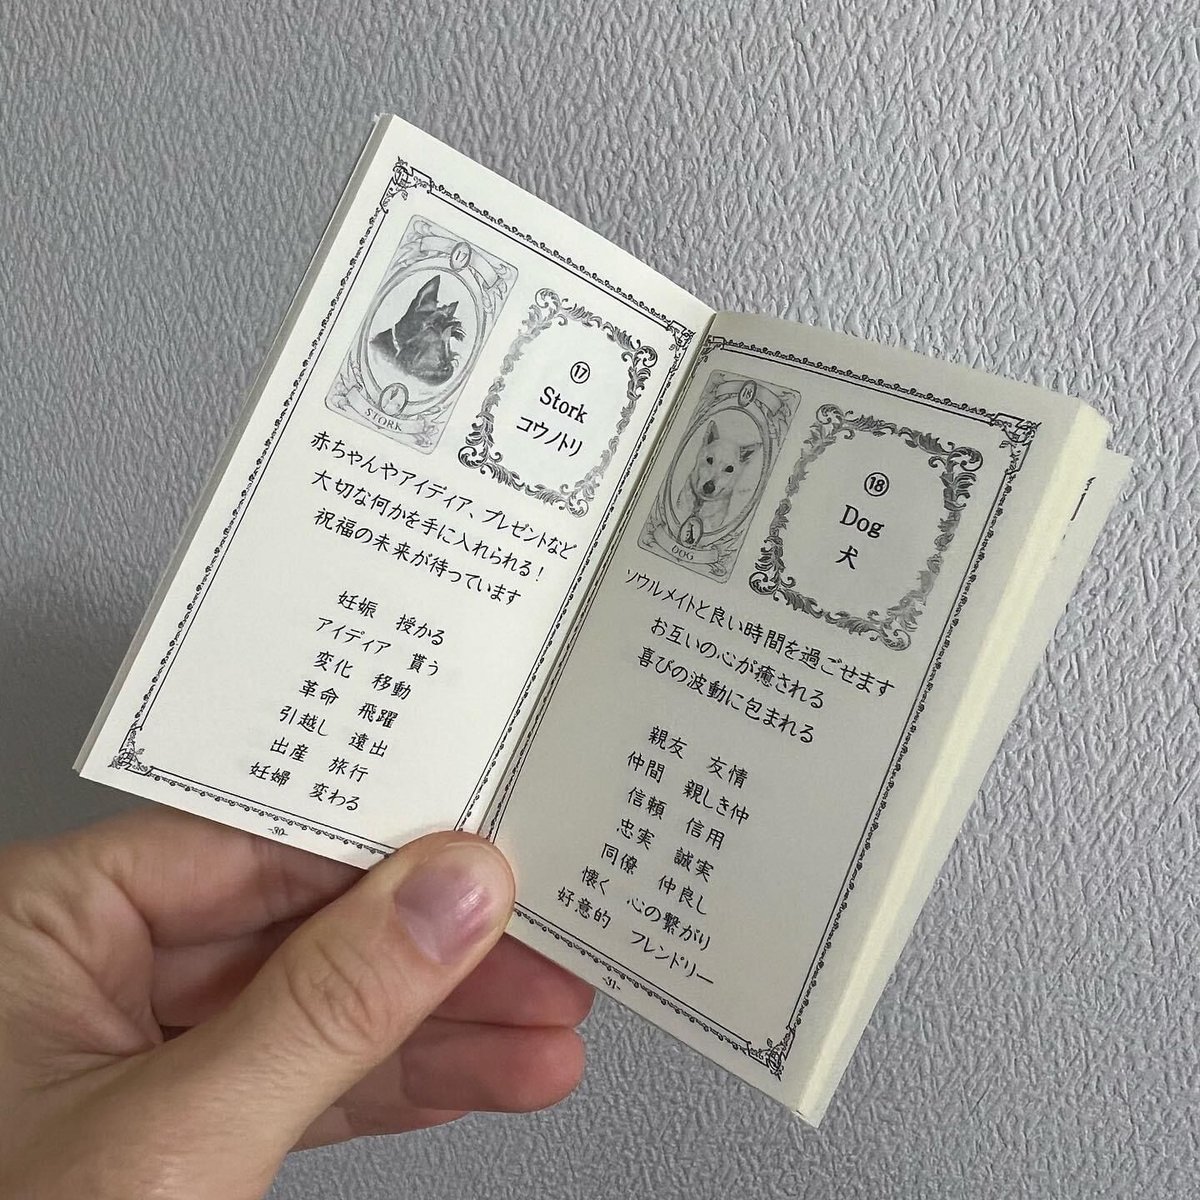 17
STORK
⑰
Stork
コウノトリ
赤ちゃんやアイディア、プレゼントなど
大切な何かを手に入れられる!
祝福の未来が待っています
妊娠 授かる
アイディア 貰う
変化 移動
革命 飛躍
引越し 遠出
出産 旅行
妊婦 変わる
-30-
18
DOG
⑱
Dog
犬
ソウルメイトと良い時間を過ごせます
お互いの心が癒される
喜びの波動に包まれる
親友 友情
仲間 親しき仲
信頼 信用
忠実 誠実
同僚 仲良し
懐く 心の繋がり
好意的 フレンドリー
-31-